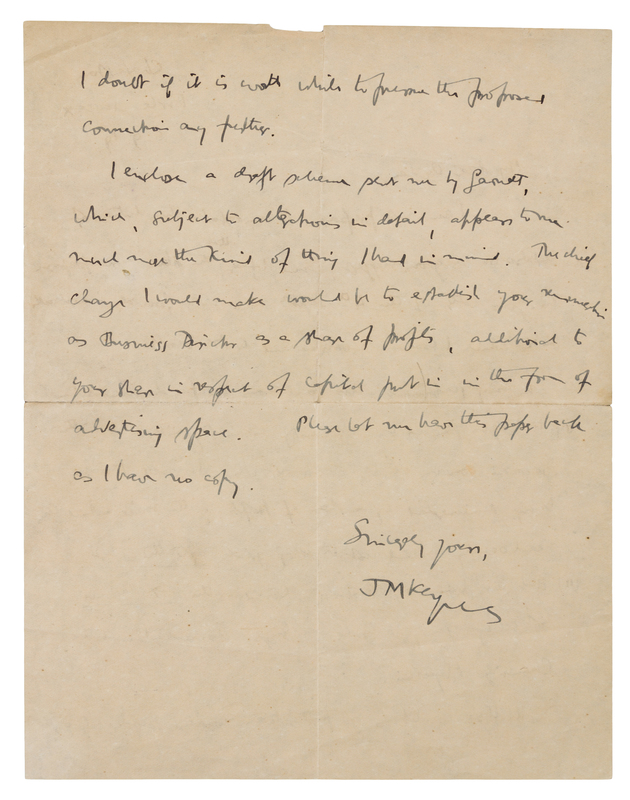 I doubt if it is worth while to pursue the proposed
connection any further.
I enclose a draft scheme sent me by Garnett,
which, subject to alterations in detail, appears to me
much more the kind of thing I had in mind. The chief
change I would make would be to establish your remuneration
as Business Director as a share of profits, additional to
your share in respect of capital put in in the form of
advertising space. Please let me have this paper back
as I have no copy.
Sincerely yours,
JMKeynes